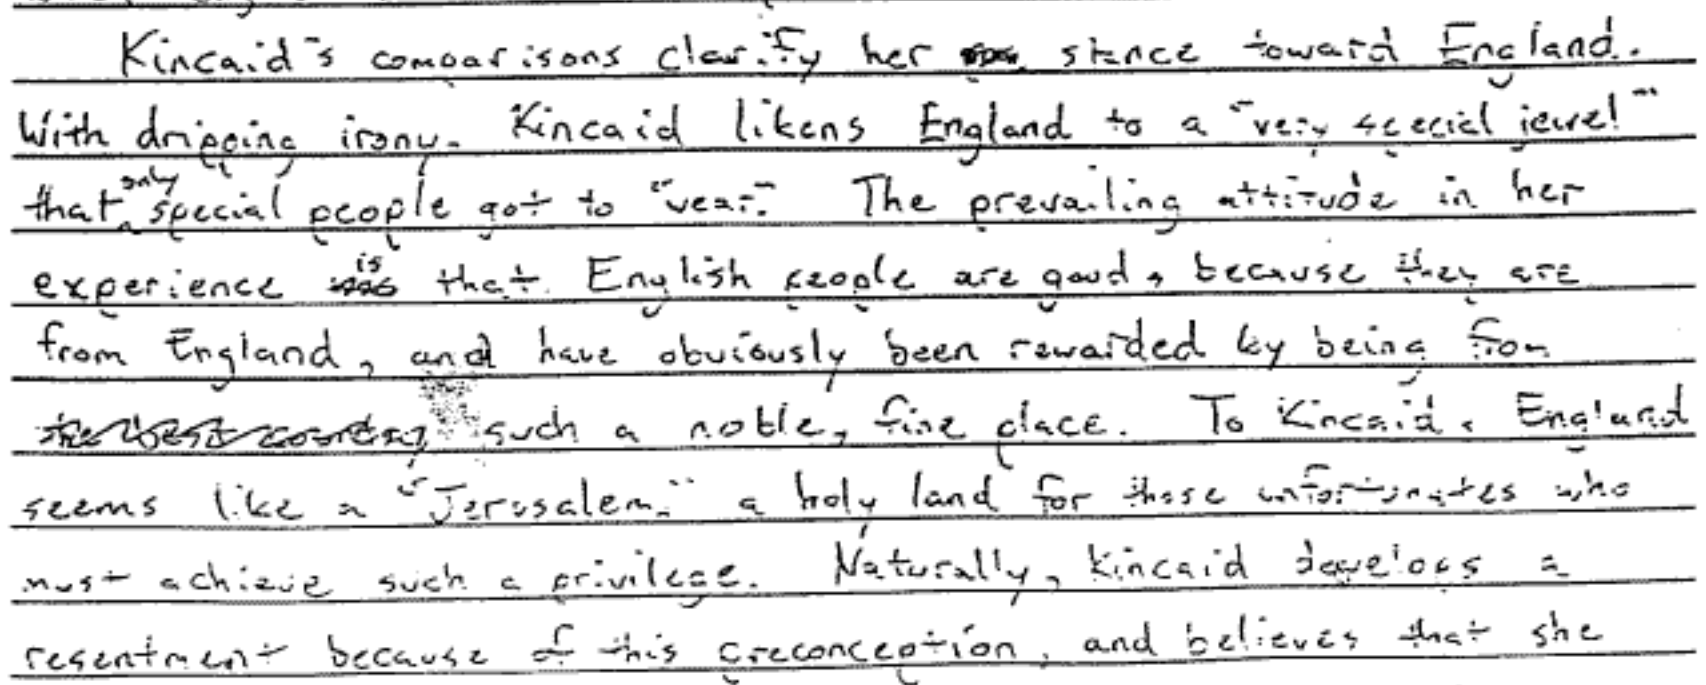 Kincaid's comparisons clarify her stance toward England.
With dripping irony, Kincaid likens England to a "very special jewel"
that only special people got to "wear." The prevailing attitude in her
experience is that English people are good, because they are
from England, and have obviously been rewarded by being from
such a noble, fine place. To Kincaid, England
seems like a "Jerusalem," a holy land for those unfortunates who
must achieve such a privilege. Naturally, Kincaid develops a
resentment because of this preconception, and believes that she